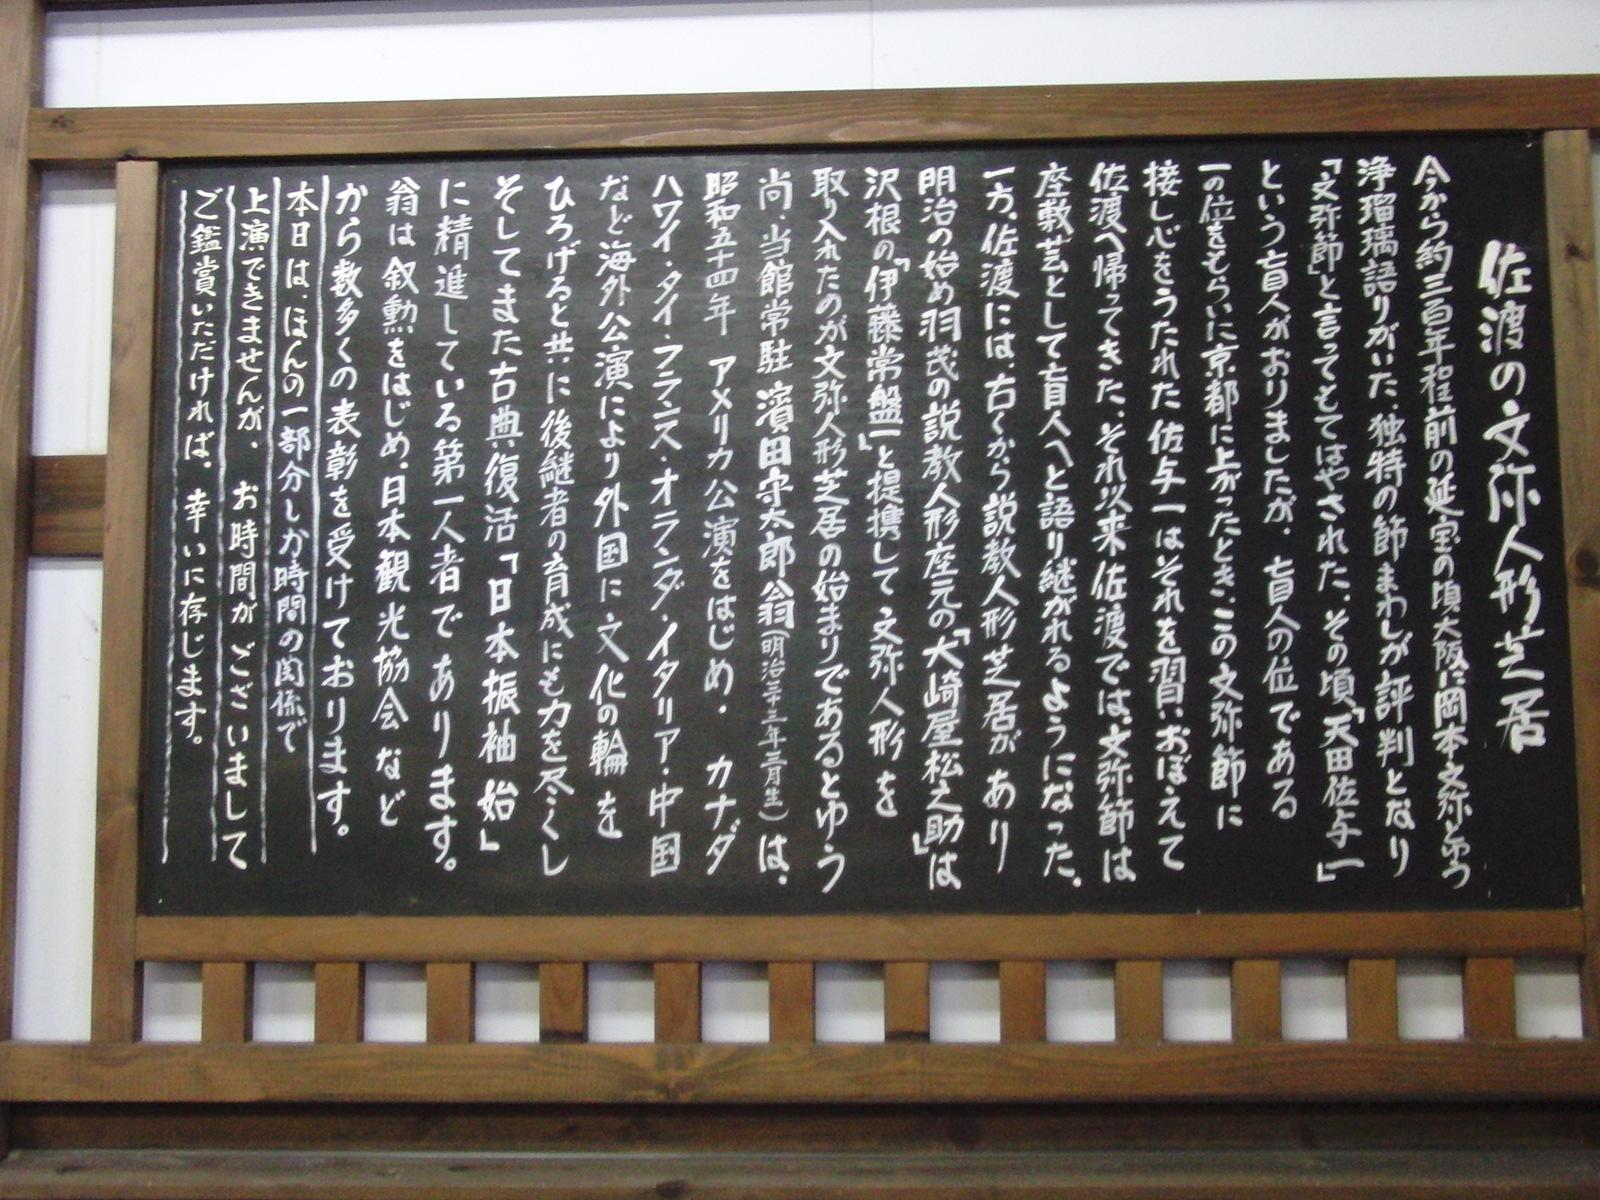 佐渡の文弥人形芝居
今から約三百年程前の延宝の頃大阪に岡本文弥と言う
浄瑠璃語りがいた、独特の節まわしが評判となり
「文弥節」と言ってもてはやされた、その頃、「天田佐与一」
という盲人がおりましたが、盲人の位である
一の位をもらいに京都に上がったとき、この文弥節に
接し心をうたれた佐与一はそれを習いおぼえて
佐渡へ帰ってきた、それ以来佐渡では、文弥節は
座敷芸として盲人へと語り継がれるようになった。
一方、佐渡には、古くから説教人形芝居があり
明治の始め羽茂の説教人形座元の「大崎屋松之助」は
沢根の「伊藤常盤一」と提携して文弥人形を
取り入れたのが文弥人形芝居の始まりであるとゆう
尚、当館常駐 濱田守太郎翁(明治三十三年三月生)は、
昭和五十四年 アメリカ公演をはじめ、カナダ
ハワイ・タイ・フランス・オランダ・イタリア・中国
など海外公演により外国に文化の輪を
ひろげると共に後継者の育成にも力を尽くし
そしてまた古典復活「日本振袖始」
に精進している第一人者であります。
翁は叙勲をはじめ、日本観光協会など
から数多くの表彰を受けております。
本日は、ほんの一部分しか時間の関係で
上演できませんが、お時間がございまして
ご鑑賞いただければ、幸いに存じます。